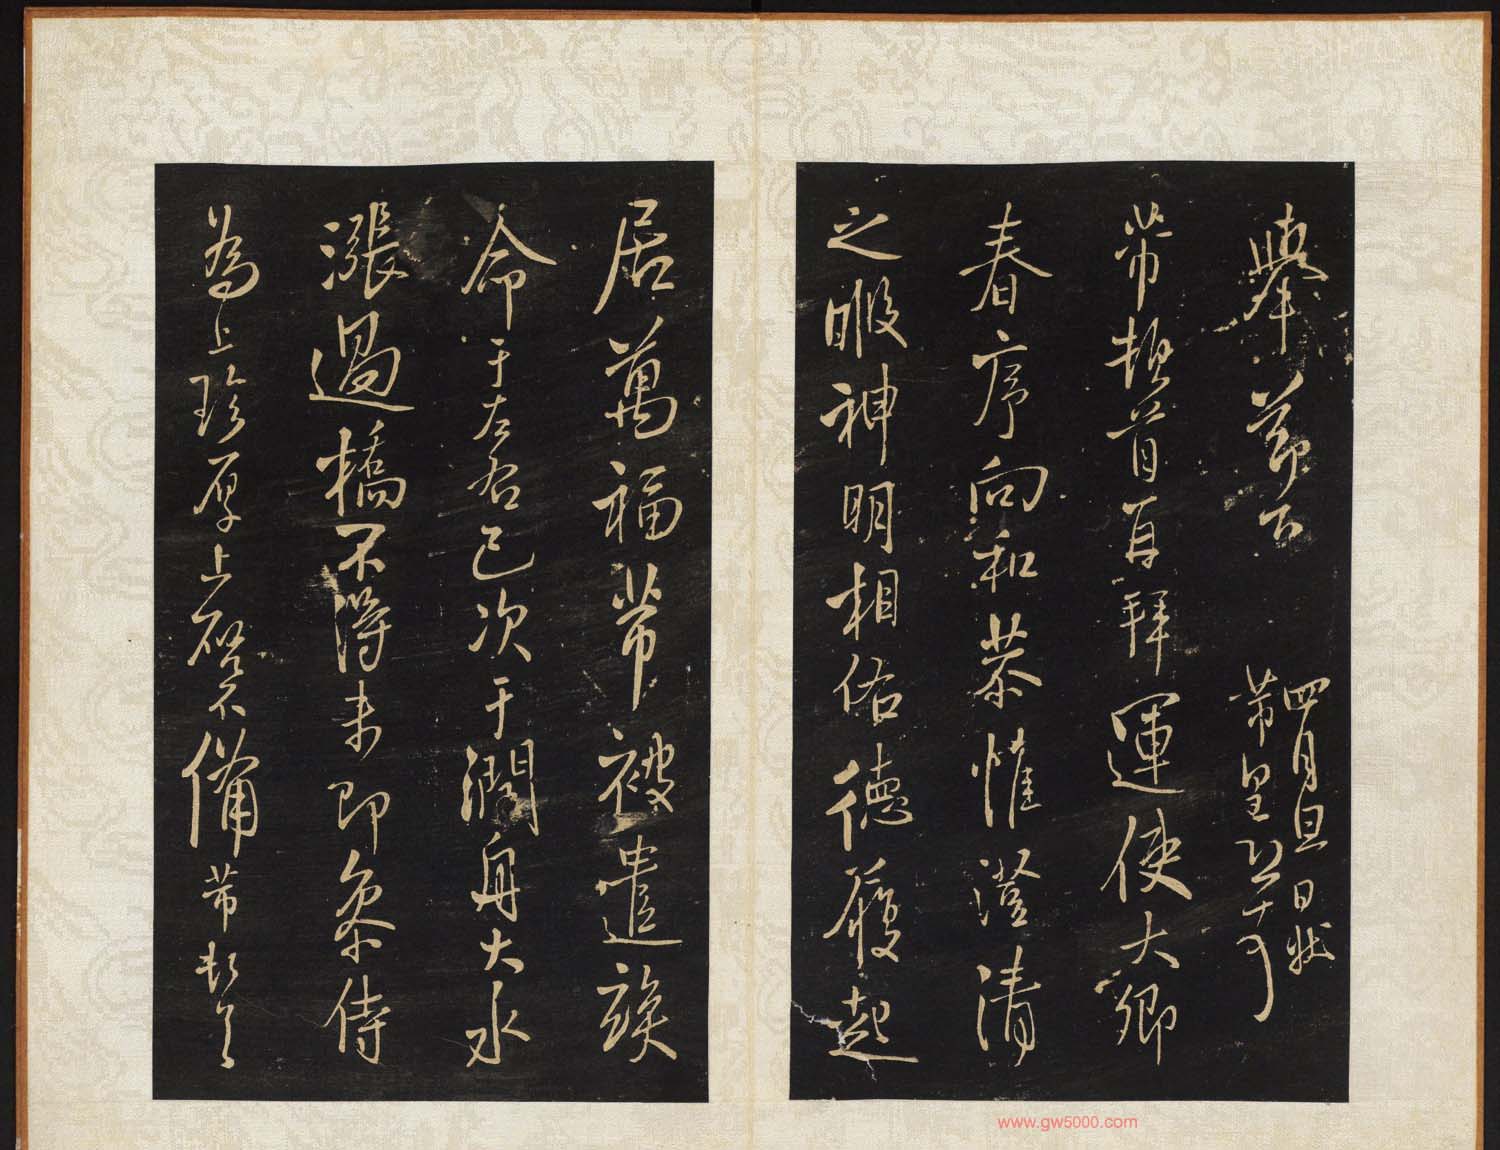 舉節下
四月旦日狀
芾皇恐
芾頓首再拜運使大卿
春序向和恭惟澄清
之暇神明相佑德履起
居萬福芾被遣竢
命于左右已次于潤舟大水
漲過橋不得未即參侍
為上珍厚上啓不備芾頓首
www.gw5000.com